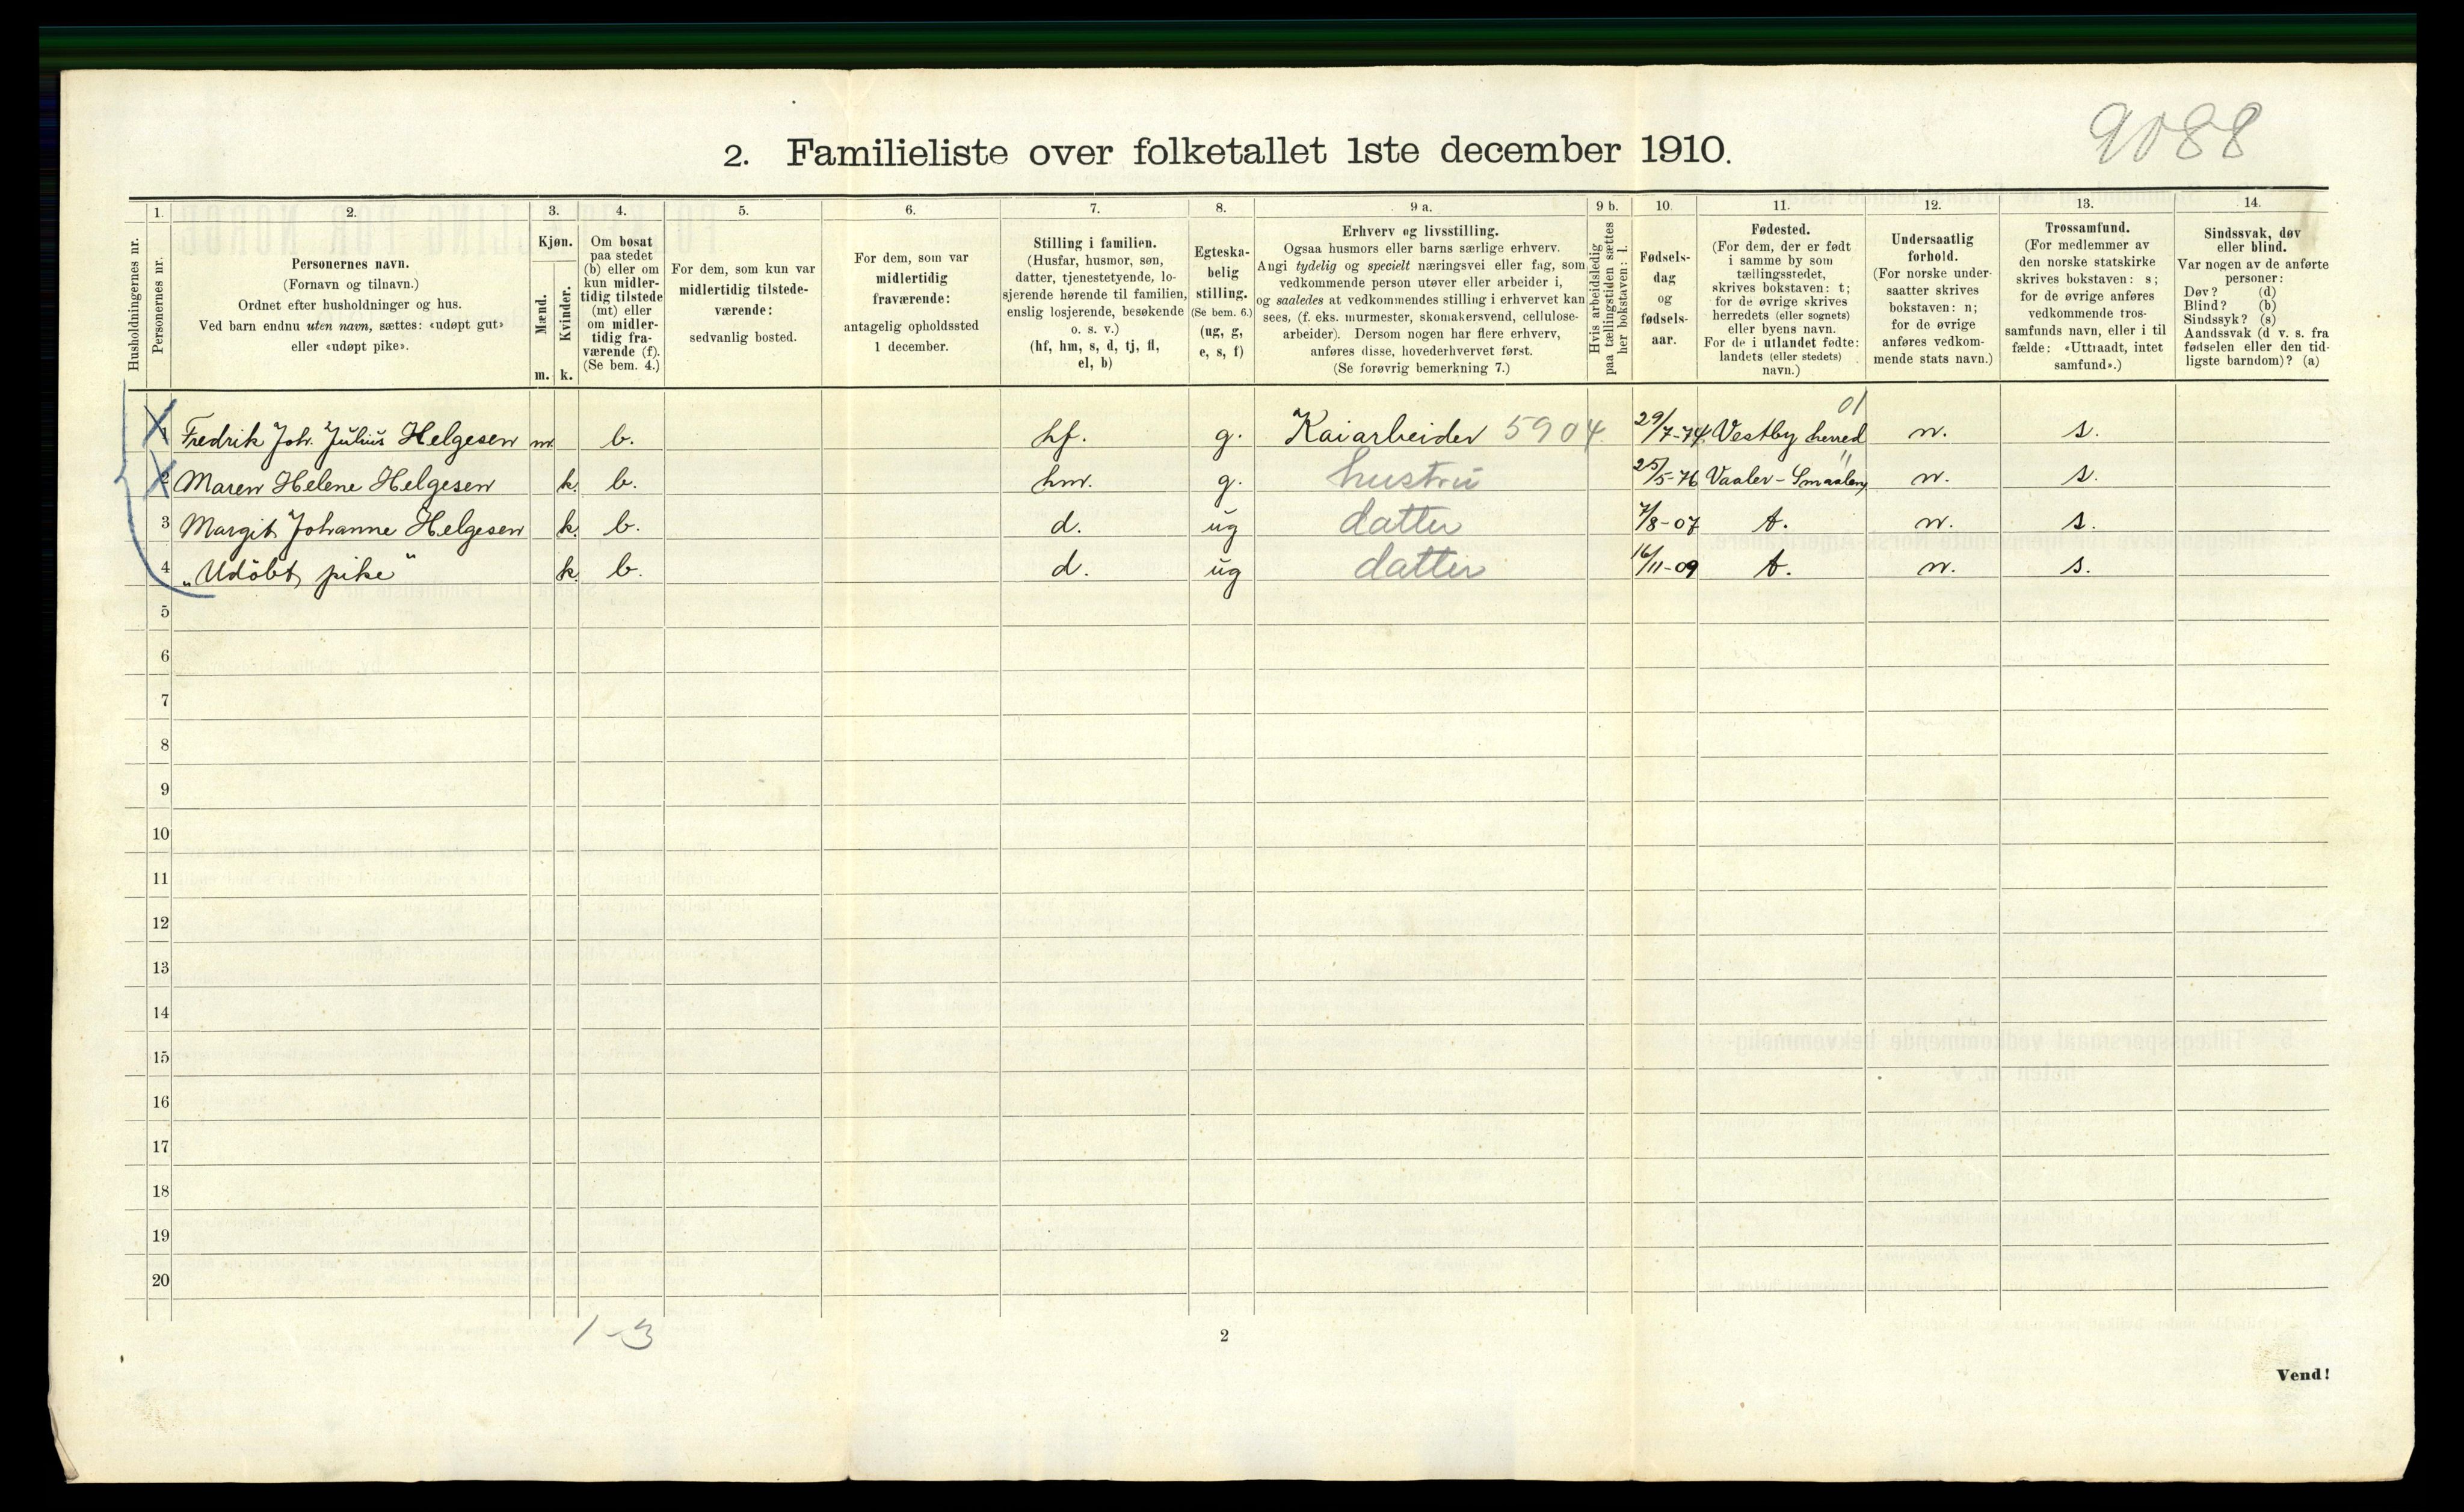 9088
2. Familieliste over folketallet 1ste december 1910.
Husholdningernes nr.
1.
Personernes nr.
2.
Personernes navn.
(Fornavn og tilnavn.)
Ordnet efter husholdninger og hus.
Ved barn endnu uten navn, sættes: «udøpt gut»
eller «udøpt pike».
3.
Kjøn.
Mænd.
Kvinder.
m. k.
4.
Om bosat
paa stedet
(b) eller om
kun midler-
tidig tilstede
(mt) eller
om midler-
tidig fra-
værende (f).
(Se bem. 4.)
5.
For dem, som kun var
midlertidig tilstede-
værende:
sedvanlig bosted.
6.
For dem, som var
midlertidig
fraværende:
antagelig opholdssted
1 december.
7.
Stilling i familien.
(Husfar, husmor, søn,
datter, tjenestetyende, lo-
sjerende hørende til familien,
enslig losjerende, besøkende
o. s. v.)
(hf, hm, s, d, tj, fl,
el, b)
8.
Egteska-
belig
stilling.
(Se bem. 6.)
(ug, g,
e, s, f)
9 a.
Erhverv og livsstilling.
Ogsaa husmors eller barns særlige erhverv.
Angi tydelig og specielt næringsvei eller fag, som
vedkommende person utøver eller arbeider i,
og saaledes at vedkommendes stilling i erhvervet kan
sees, (f. eks. murmester, skomakersvend, cellulose-
arbeider). Dersom nogen har flere erhverv,
anføres disse, hovederhvervet først.
(Se forøvrig bemerkning 7.)
9 b.
Hvis arbeidsledig
paa tællingstiden sættes
her bokstaven: l.
10.
Fødsels-
dag
og
fødsels-
aar.
11.
Fødested.
(For dem, der er født
i samme by som
tællingsstedet,
skrives bokstaven: t;
for de øvrige skrives
herredets (eller sognets)
eller byens navn.
For de i utlandet fødte:
landets (eller stedets)
navn.)
12.
Undersaatlig
forhold.
(For norske under-
saatter skrives
bokstaven: n;
for de øvrige
anføres vedkom-
mende stats navn.)
13.
Trossamfund.
(For medlemmer av
den norske statskirke
skrives bokstaven: s;
for de øvrige anføres
vedkommende tros-
samfunds navn, eller i til
fælde: «Uttraadt, intet
samfund».)
14.
Sindssvak, døv
eller blind.
Var nogen av de anførte
personer:
Døv? (d)
Blind? (b)
Sindssyk? (s)
Aandssvak (d v. s. fra
fødselen eller den tid-
ligste barndom)? (a)
1 Fredrik Joh. Julius Helgesen m. b. hf. g. Kaiarbeider 5904 29/7-74. Vestby herred 01 n. s.
2 Maren Helene Helgesen k. b. hm. g. hustru 25/5-76 Vaaler - Smaalen. " n. s.
3 Margit Johanne Helgesen k. b. d. ug datter 7/8-07 t. n. s.
4 „Udöbt pike" k. b. d. ug datter 16/11-09 t. n. s.
5
6
7
8
9
10
11
12
13
14
15
16
17
18
19
20
1-3
2
Vend!